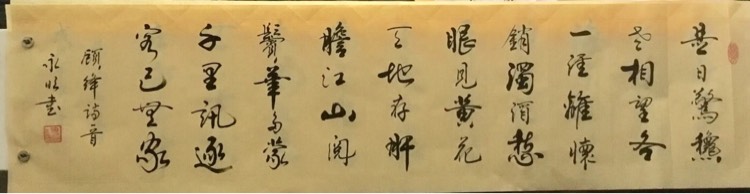 是日驚穐
老相望各
一涯離懷
銷濁酒愁
眼見黃花
天地存肝
膽江山閱
鬢華多蒙
千里訊逐
客已無家
顧絳詩一首
永書